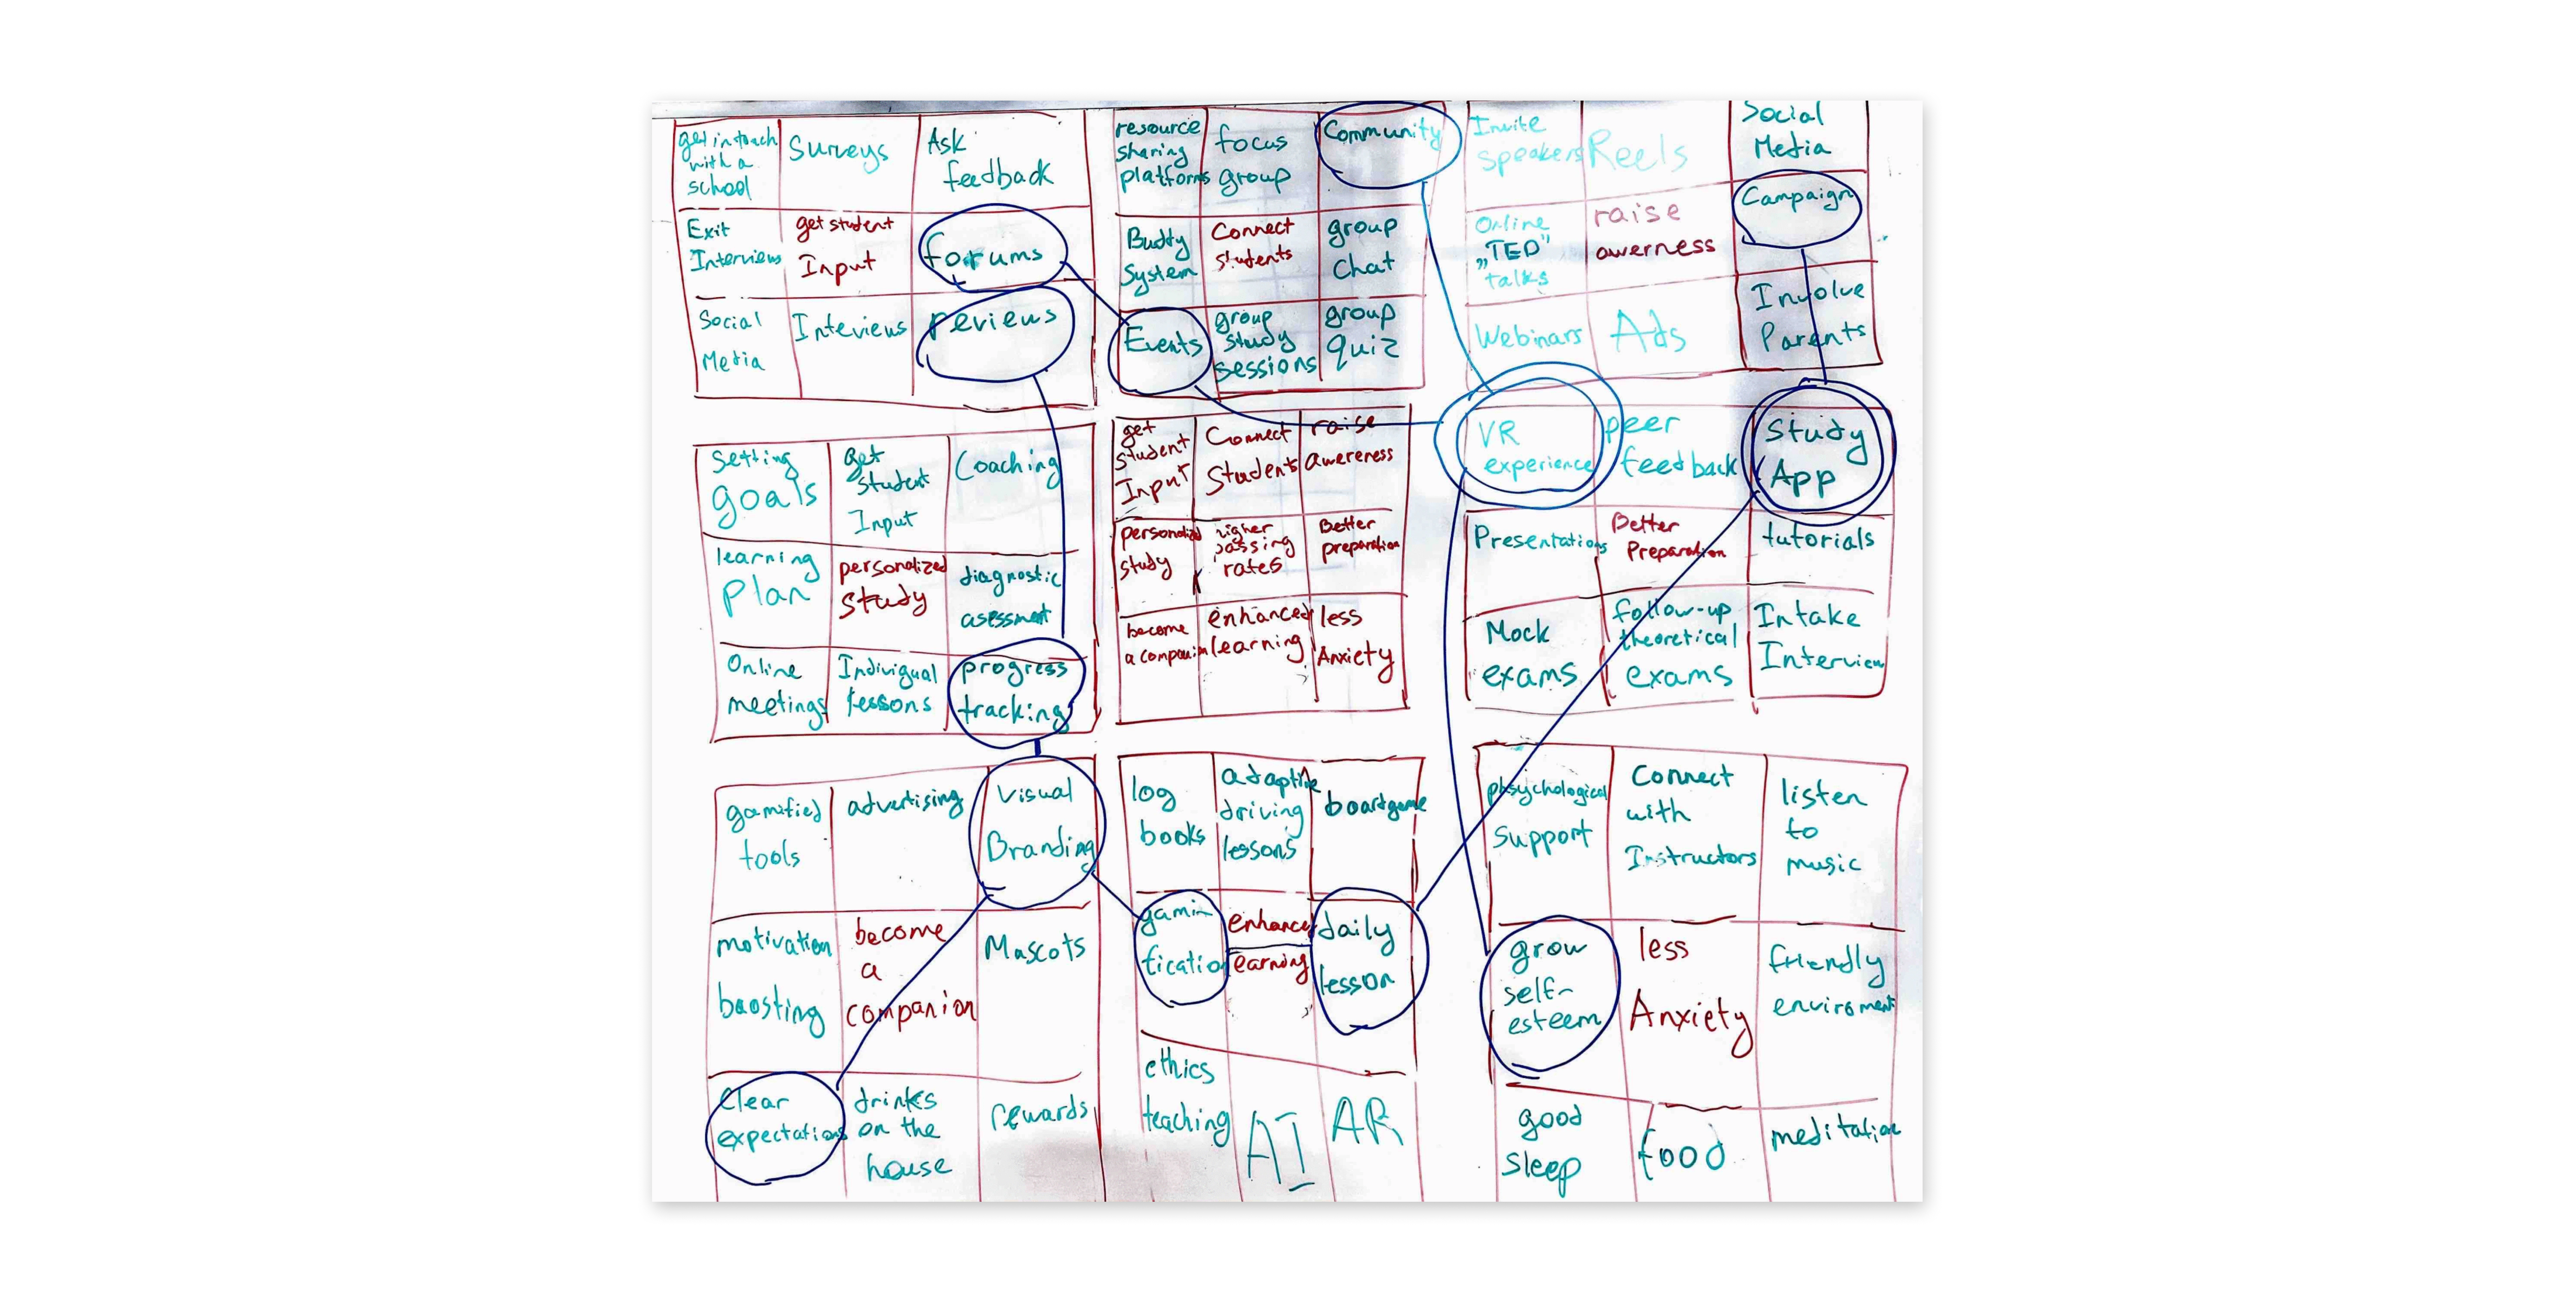 get in touch
with a
school
Surveys
Ask
feedback
Exit
Interviews
get student
Input
forums
Social
Media
Inteviews
reviews
resource
sharing
platforms
focus
group
Community
Buddy
System
Connect
students
group
chat
Events
group
study
sessions
group
quiz
Invite
speakers
Reels
Social
Media
Online
„TED”
talks
raise
awerness
Campaign
Webinars
Ads
Involve
Parents
Setting
goals
get
student
Input
Coaching
learning
plan
personalized
study
diagnostic
asessment
Online
meetings
Individual
lessons
progress
tracking
get
student
Input
Connect
Students
raise
awereness
personalized
study
higher
passing
rates
Better
preparation
become
a companion
enhanced
learning
less
Anxiety
VR
experience
peer
feedback
Study
App
Presentations
Better
Preparation
tutorials
Mock
exams
follow-up
theoretical
exams
Intake
Interview
gamified
tools
advertising
Visual
Branding
motivation
boosting
become
a
companion
Mascots
Clear
expectations
drinks
on the
house
rewards
log
books
adaptive
driving
lessons
boardgame
gami-
fication
enhanced
learning
daily
lesson
ethics
teaching
AI
AR
phsychological
support
Connect
with
Instructors
listen
to
music
grow
self-
esteem
less
Anxiety
friendly
enviroment
good
sleep
food
meditation